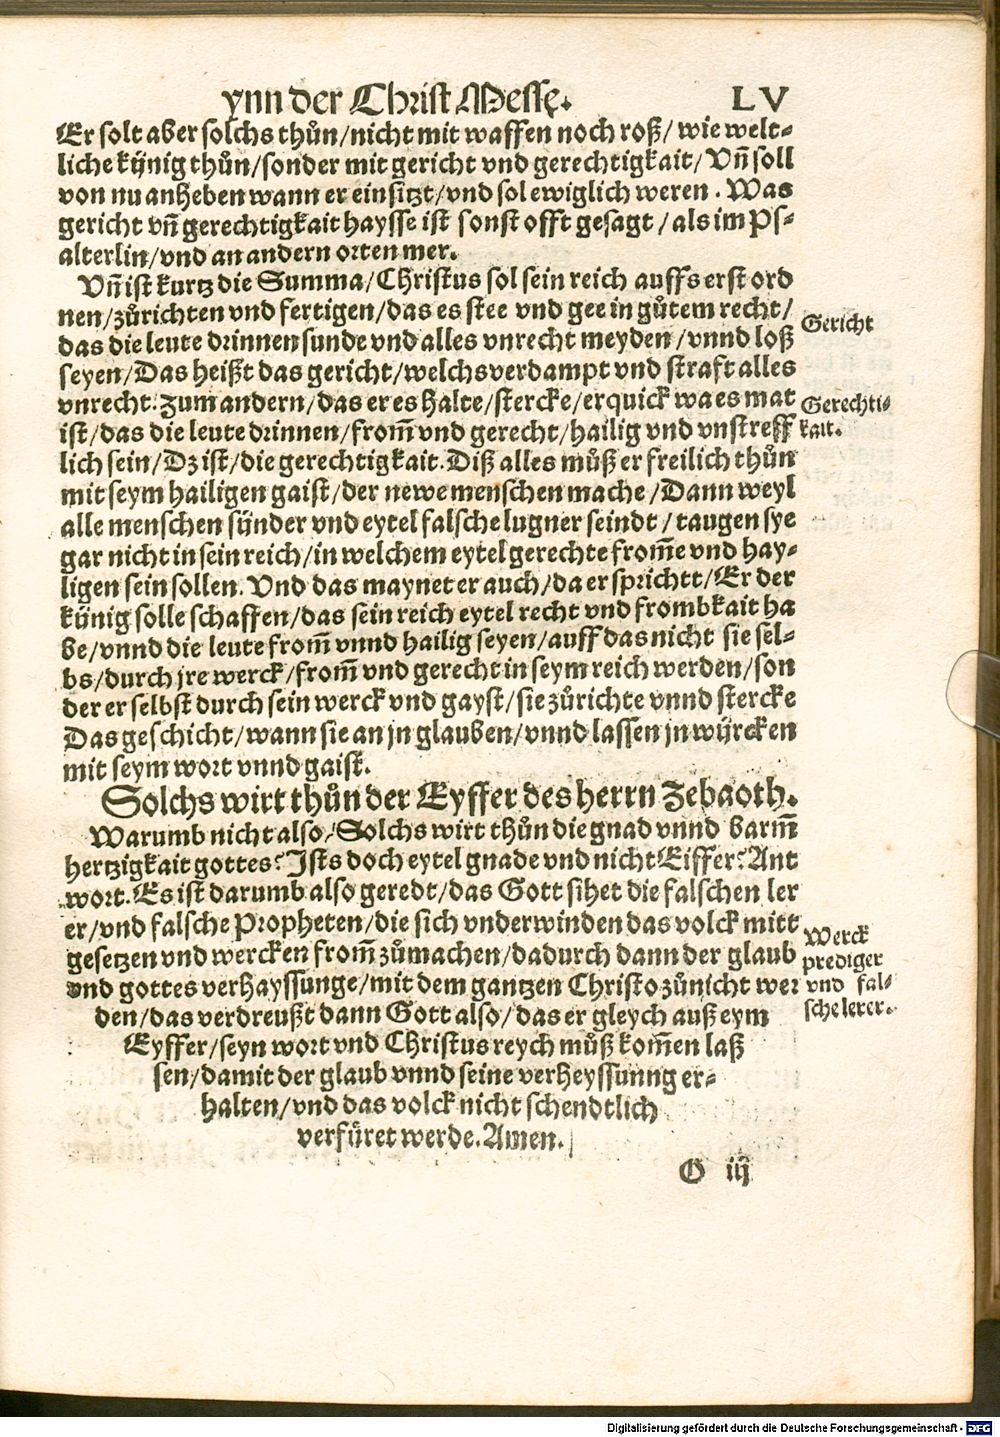 ynn der Christ Messe.
LV
Er solt aber solchs thůn/nicht mit waffen noch roß/wie welt-
liche künig thůn/sonder mit gericht vnd gerechtigkait/Vñ soll
von nu anheben wann er einsitzt/vnd sol ewiglich weren. Was
gericht vñ gerechtigkait haysse ist sonst offt gesagt/als im Ps-
alterlin/vnd an andern orten mer.
Vñ ist kurtz die Summa/Christus sol sein reich auffs erst ord
nen/zůrichten vnd fertigen/das es stee vnd gee in gůtem recht/
das die leute drinnen sunde vnd alles vnrecht meyden/vnnd loß
seyen/Das heißt das gericht/welchs verdampt vnd straft alles
vnrecht. Zum andern/das er es halte/stercke/erquick wa es mat
ist/das die leute drinnen/from̃ vnd gerecht/hailig vnd vnstreff
lich sein/Dz ist/die gerechtigkait. Diß alles můß er freilich thůn
mit seym hailigen gaist/der newe menschen mache/Dann weyl
alle menschen sünder vnd eytel falsche lugner seindt/taugen sye
gar nicht in sein reich/in welchem eytel gerechte from̃e vnd hay-
ligen sein sollen. Vnd das maynet er auch/da er sprichtt/Er der
künig solle schaffen/das sein reich eytel recht vnd frombkait ha
be/vnnd die leute from̃ vnnd hailig seyen/auff das nicht sie sel-
bs/durch jre werck/from̃ vnd gerecht in seym reich werden/son
der er selbst durch sein werck vnd gayst/sie zůrichte vnnd stercke
Das geschicht/wann sie an jn glauben/vnnd lassen jn würcken
mit seym wort vnnd gaist.
Solchs wirt thůn der Eyffer des herrn Zebaoth.
Warumb nicht also/Solchs wirt thůn die gnad vnnd barm̃
hertzigkait gottes? Ists doch eytel gnade vnd nicht Eiffer? Ant
wort. Es ist darumb also geredt/das Gott sihet die falschen ler
er/vnd falsche Propheten/die sich vnderwinden das volck mitt
gesetzen vnd wercken from̃ zůmachen/dadurch dann der glaub
vnd gottes verhayssunge/mit dem gantzen Christo zůnicht wer
den/das verdreußt dann Gott also/das er gleych auß eym
Eyffer/seyn wort vnd Christus reych můß kom̃en laß
sen/damit der glaub vnnd seine verheyssunng er-
halten/vnd das volck nicht schendtlich
verfüret werde. Amen.
G iij
Gericht
Gerechti-
kait.
Werck
prediger
vnd fal-
sche lerer.
Digitalisierung gefördert durch die Deutsche Forschungsgemeinschaft - DFG